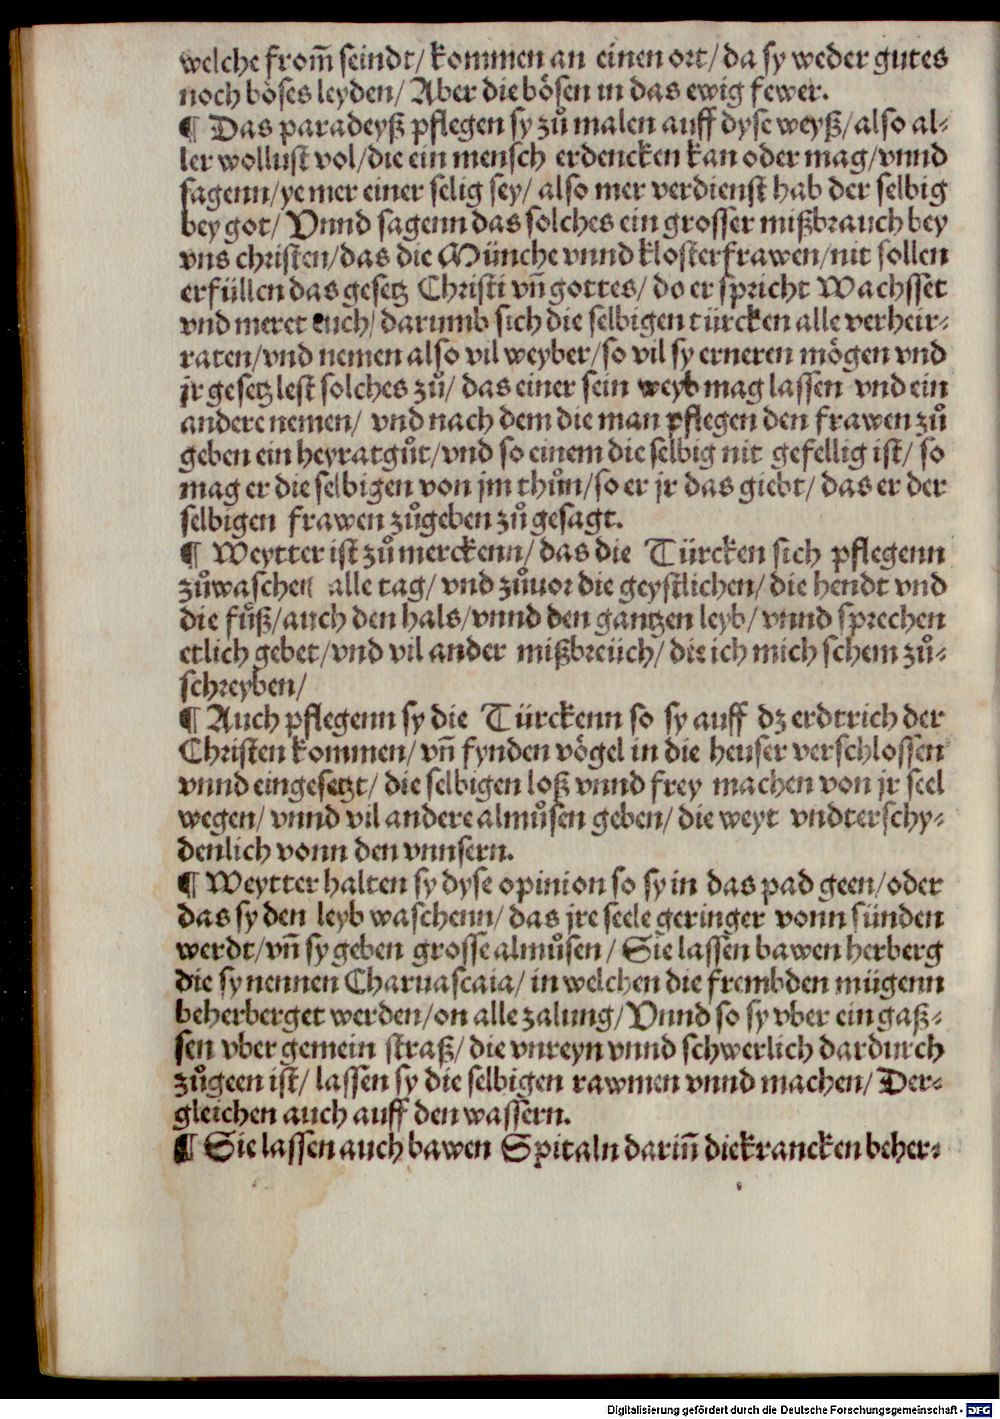 welche from̄ seindt/ kommen an einen ort/ da sy weder gutes
noch böses leyden/ Aber die bösen in das ewig fewer.
¶ Das paradeyß pflegen sy zů malen auff dyse weyß/ also al⸗
ler wollust vol/ die ein mensch erdencken kan oder mag/ vnnd
sagenn/ ye mer einer selig sey/ also mer verdienst hab der selbig
bey got/ Vnnd sagenn das solches ein grosser mißbrauch bey
vns christen/ das die Münche vnnd klosterfrawen/ nit sollen
erfüllen das gesetz Christi vñ gottes/ do er spricht Wachsset
vnd meret euch/ darumb sich die selbigen türcken alle verheir⸗
raten/ vnd nemen also vil weyber/ so vil sy erneren mögen vnd
jr gesetz lest solches zů/ das einer sein weyb mag lassen vnd ein
andere nemen/ vnd nach dem die man pflegen den frawen zů
geben ein heyratgůt/ vnd so einem die selbig nit gefellig ist/ so
mag er die selbigen von jm thůn/ so er jr das giebt/ das er der
selbigen frawen zůgeben zů gesagt.
¶ Weytter ist zů merckenn/ das die Türcken sich pflegenn
zůwaschen alle tag/ vnd zůuor die geystlichen/ die hendt vnd
die fůß/ auch den hals/ vnnd den gantzen leyb/ vnnd sprechen
etlich gebet/ vnd vil ander mißbreüch/ die ich mich schem zů⸗
schreyben/
¶ Auch pflegenn sy die Türckenn so sy auff dz erdtrich der
Christen kommen/ vñ fynden vögel in die heuser verschlossen
vnnd eingesetzt/ die selbigen loß vnnd frey machen von jr seel
wegen/ vnnd vil andere almůsen geben/ die weyt vndterschy⸗
denlich vonn den vnnsern.
¶ Weytter halten sy dyse opinion so sy in das pad geen/ oder
das sy den leyb waschenn/ das jre seele geringer vonn sünden
werdt/ vñ sy geben grosse almůsen/ Sie lassen bawen herberg
die sy nennen Charuascaia/ in welchen die frembden mügenn
beherberget werden/ on alle zalung/ Vnnd so sy vber ein gaß⸗
sen vber gemein straß/ die vnreyn vnnd schwerlich dardurch
zůgeen ist/ lassen sy die selbigen rawmen vnnd machen/ Der⸗
gleichen auch auff den wassern.
¶ Sie lassen auch bawen Spitaln dariñ die krancken beher⸗
Digitalisierung gefördert durch die Deutsche Forschungsgemeinschaft - DFG